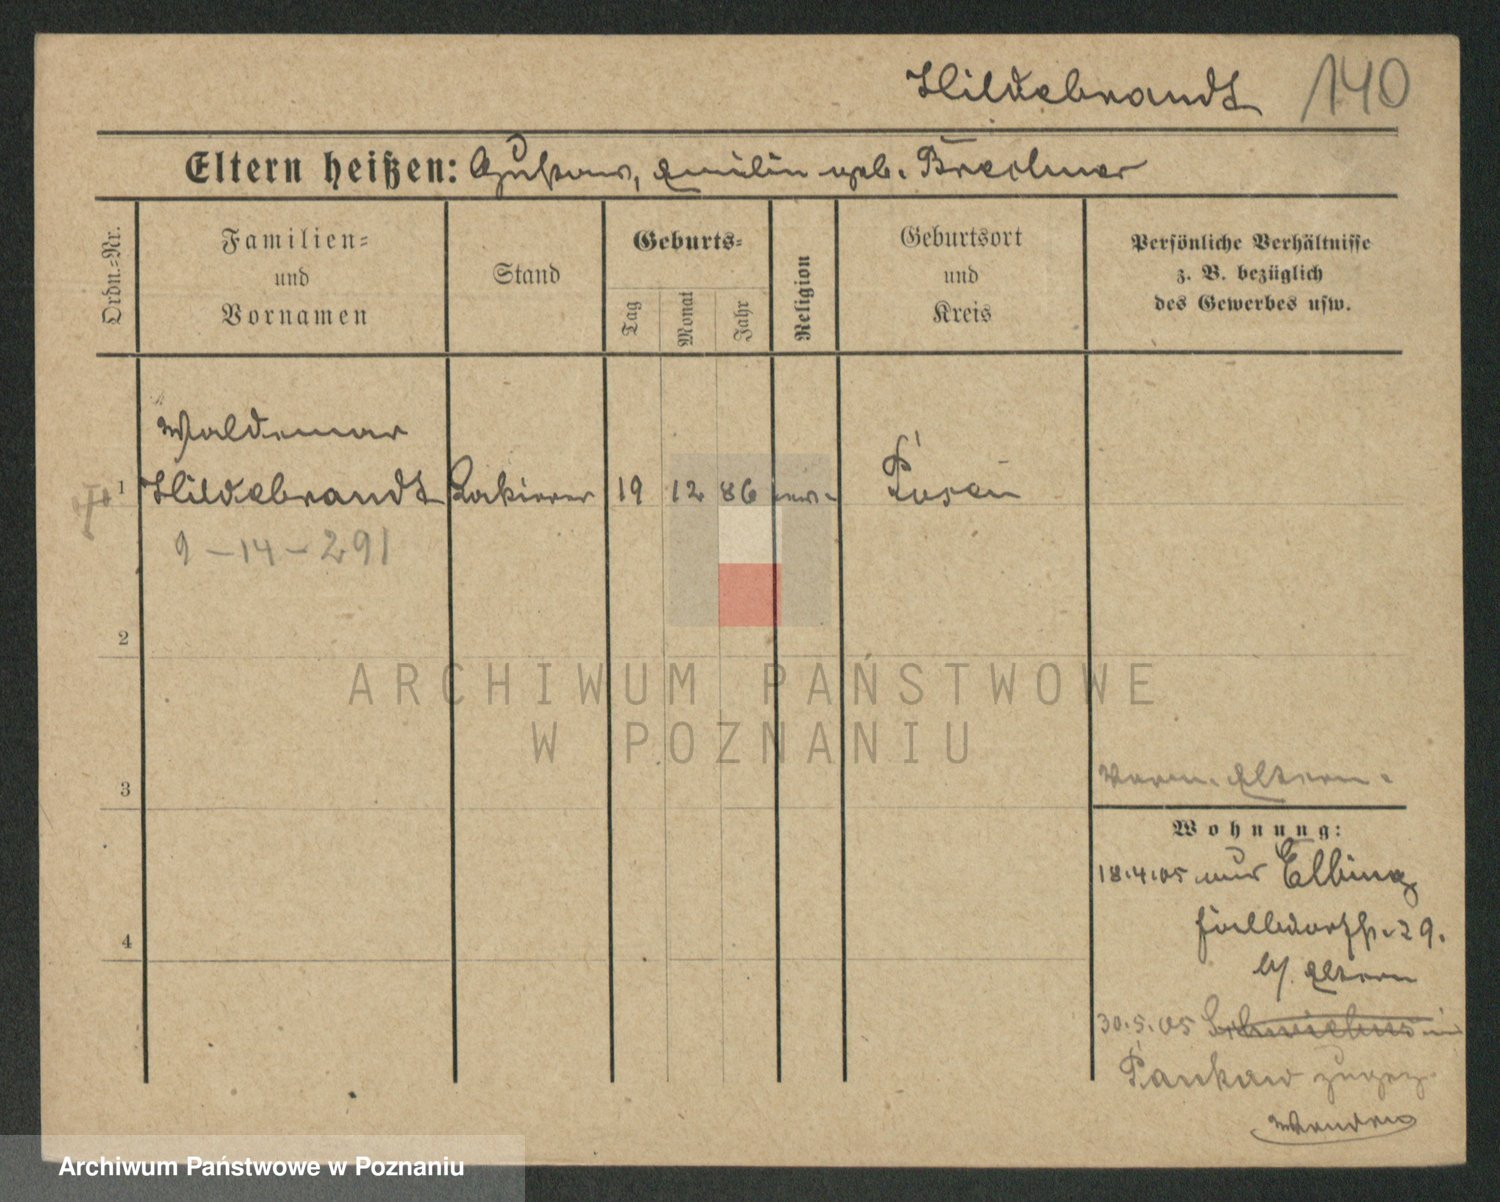 Hildebrandt 140
Eltern heißen: Gustav, Emilie geb. Brechmer
Ordn.-Nr.
Familien-
und
Vornamen
Stand
Geburts-
Tag
Monat
Jahr
Religion
Geburtsort
und
Kreis
Persönliche Verhältnisse
z. B. bezüglich
des Gewerbes usw.
Waldemar
1 Hildebrandt Lackierer 19 12 86 ev. Posen
9-14-291
2
3
4
Eltern.
Wohnung:
18.4.05 Elbing
29.
b/ Eltern
30.5.05 Schwiebus
Pankow zugez.
Wenden
ARCHIWUM PAŃSTWOWE
W POZNANIU
Archiwum Państwowe w Poznaniu